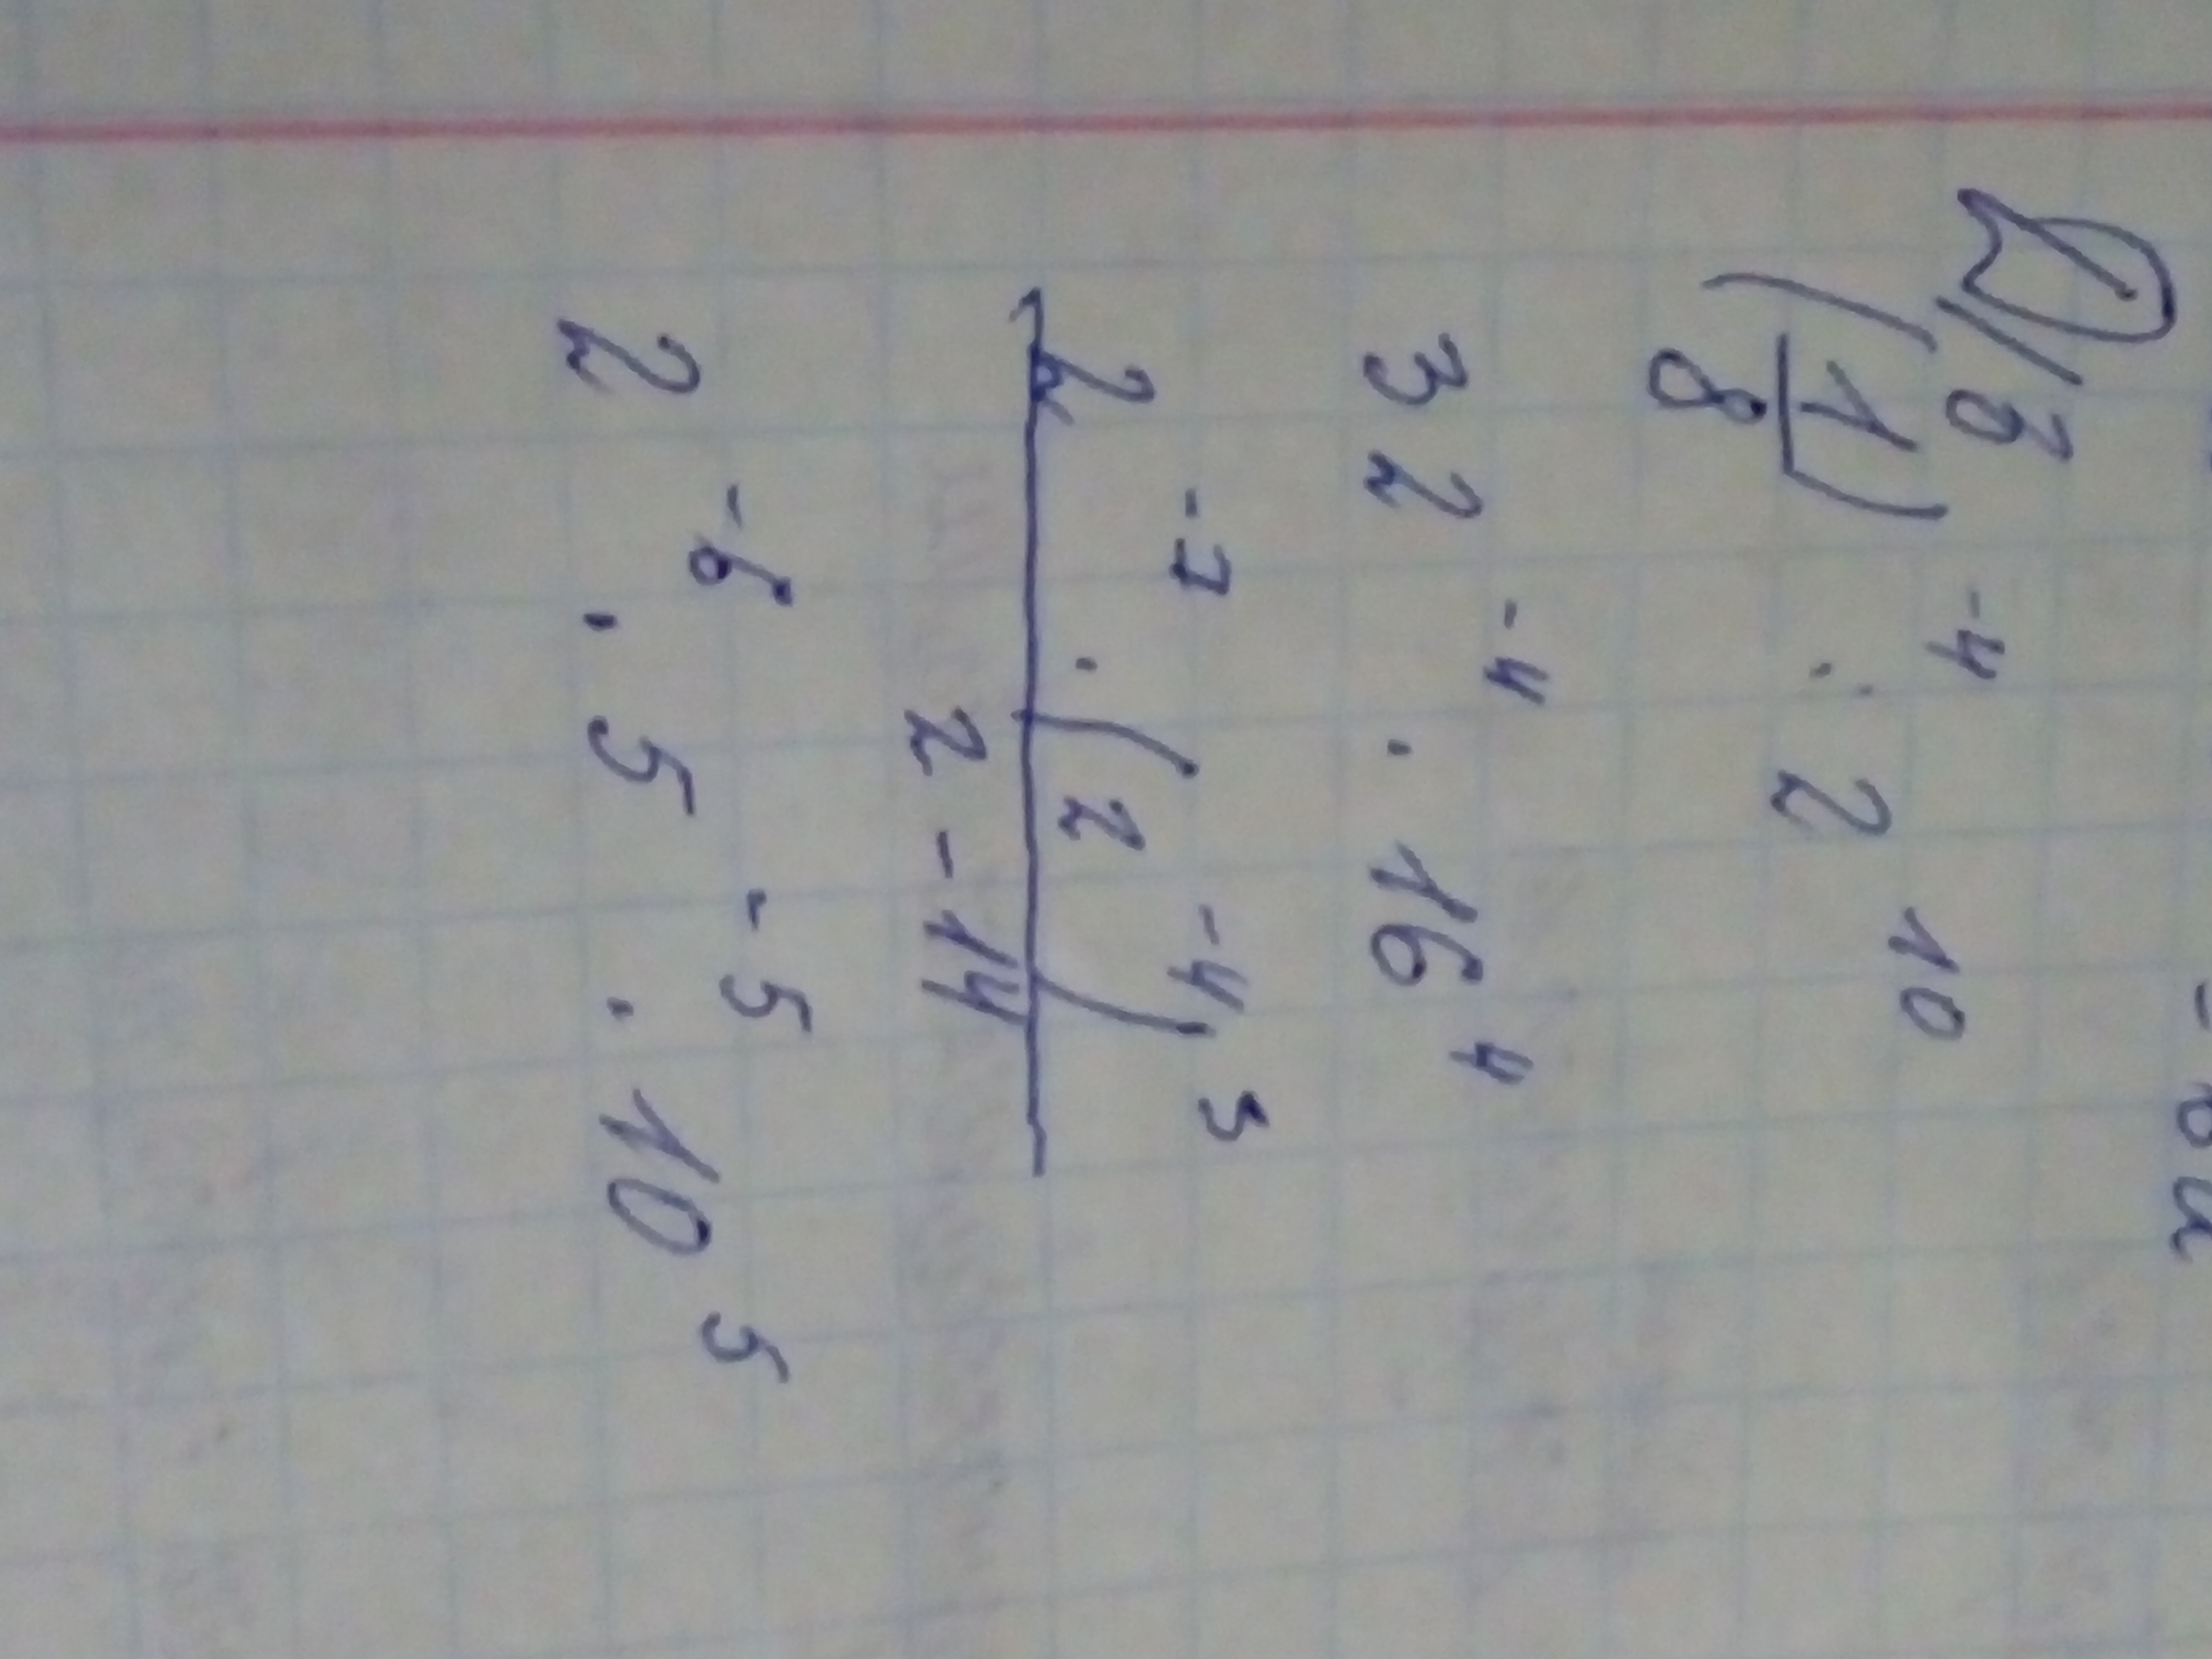 Д/з
(1/8)⁻⁴ : 2¹⁰
32⁻⁴ · 16⁴
2⁻⁷ · (2⁻⁴)³
2⁻¹⁴
2⁻⁶ · 5⁻⁵ · 10⁵